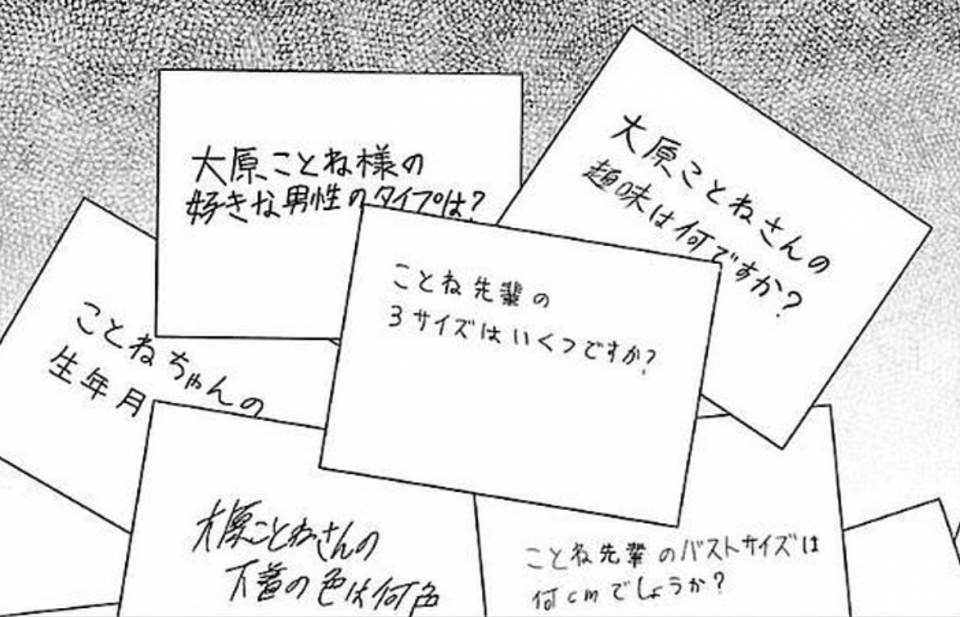 大原ことね様の
好きな男性のタイプは？
大原ことねさんの
趣味は何ですか？
ことね先輩の
3サイズはいくつですか？
ことねちゃんの
生年月
大原ことねさんの
下着の色は何色
ことね先輩のバストサイズは
何cmでしょうか？